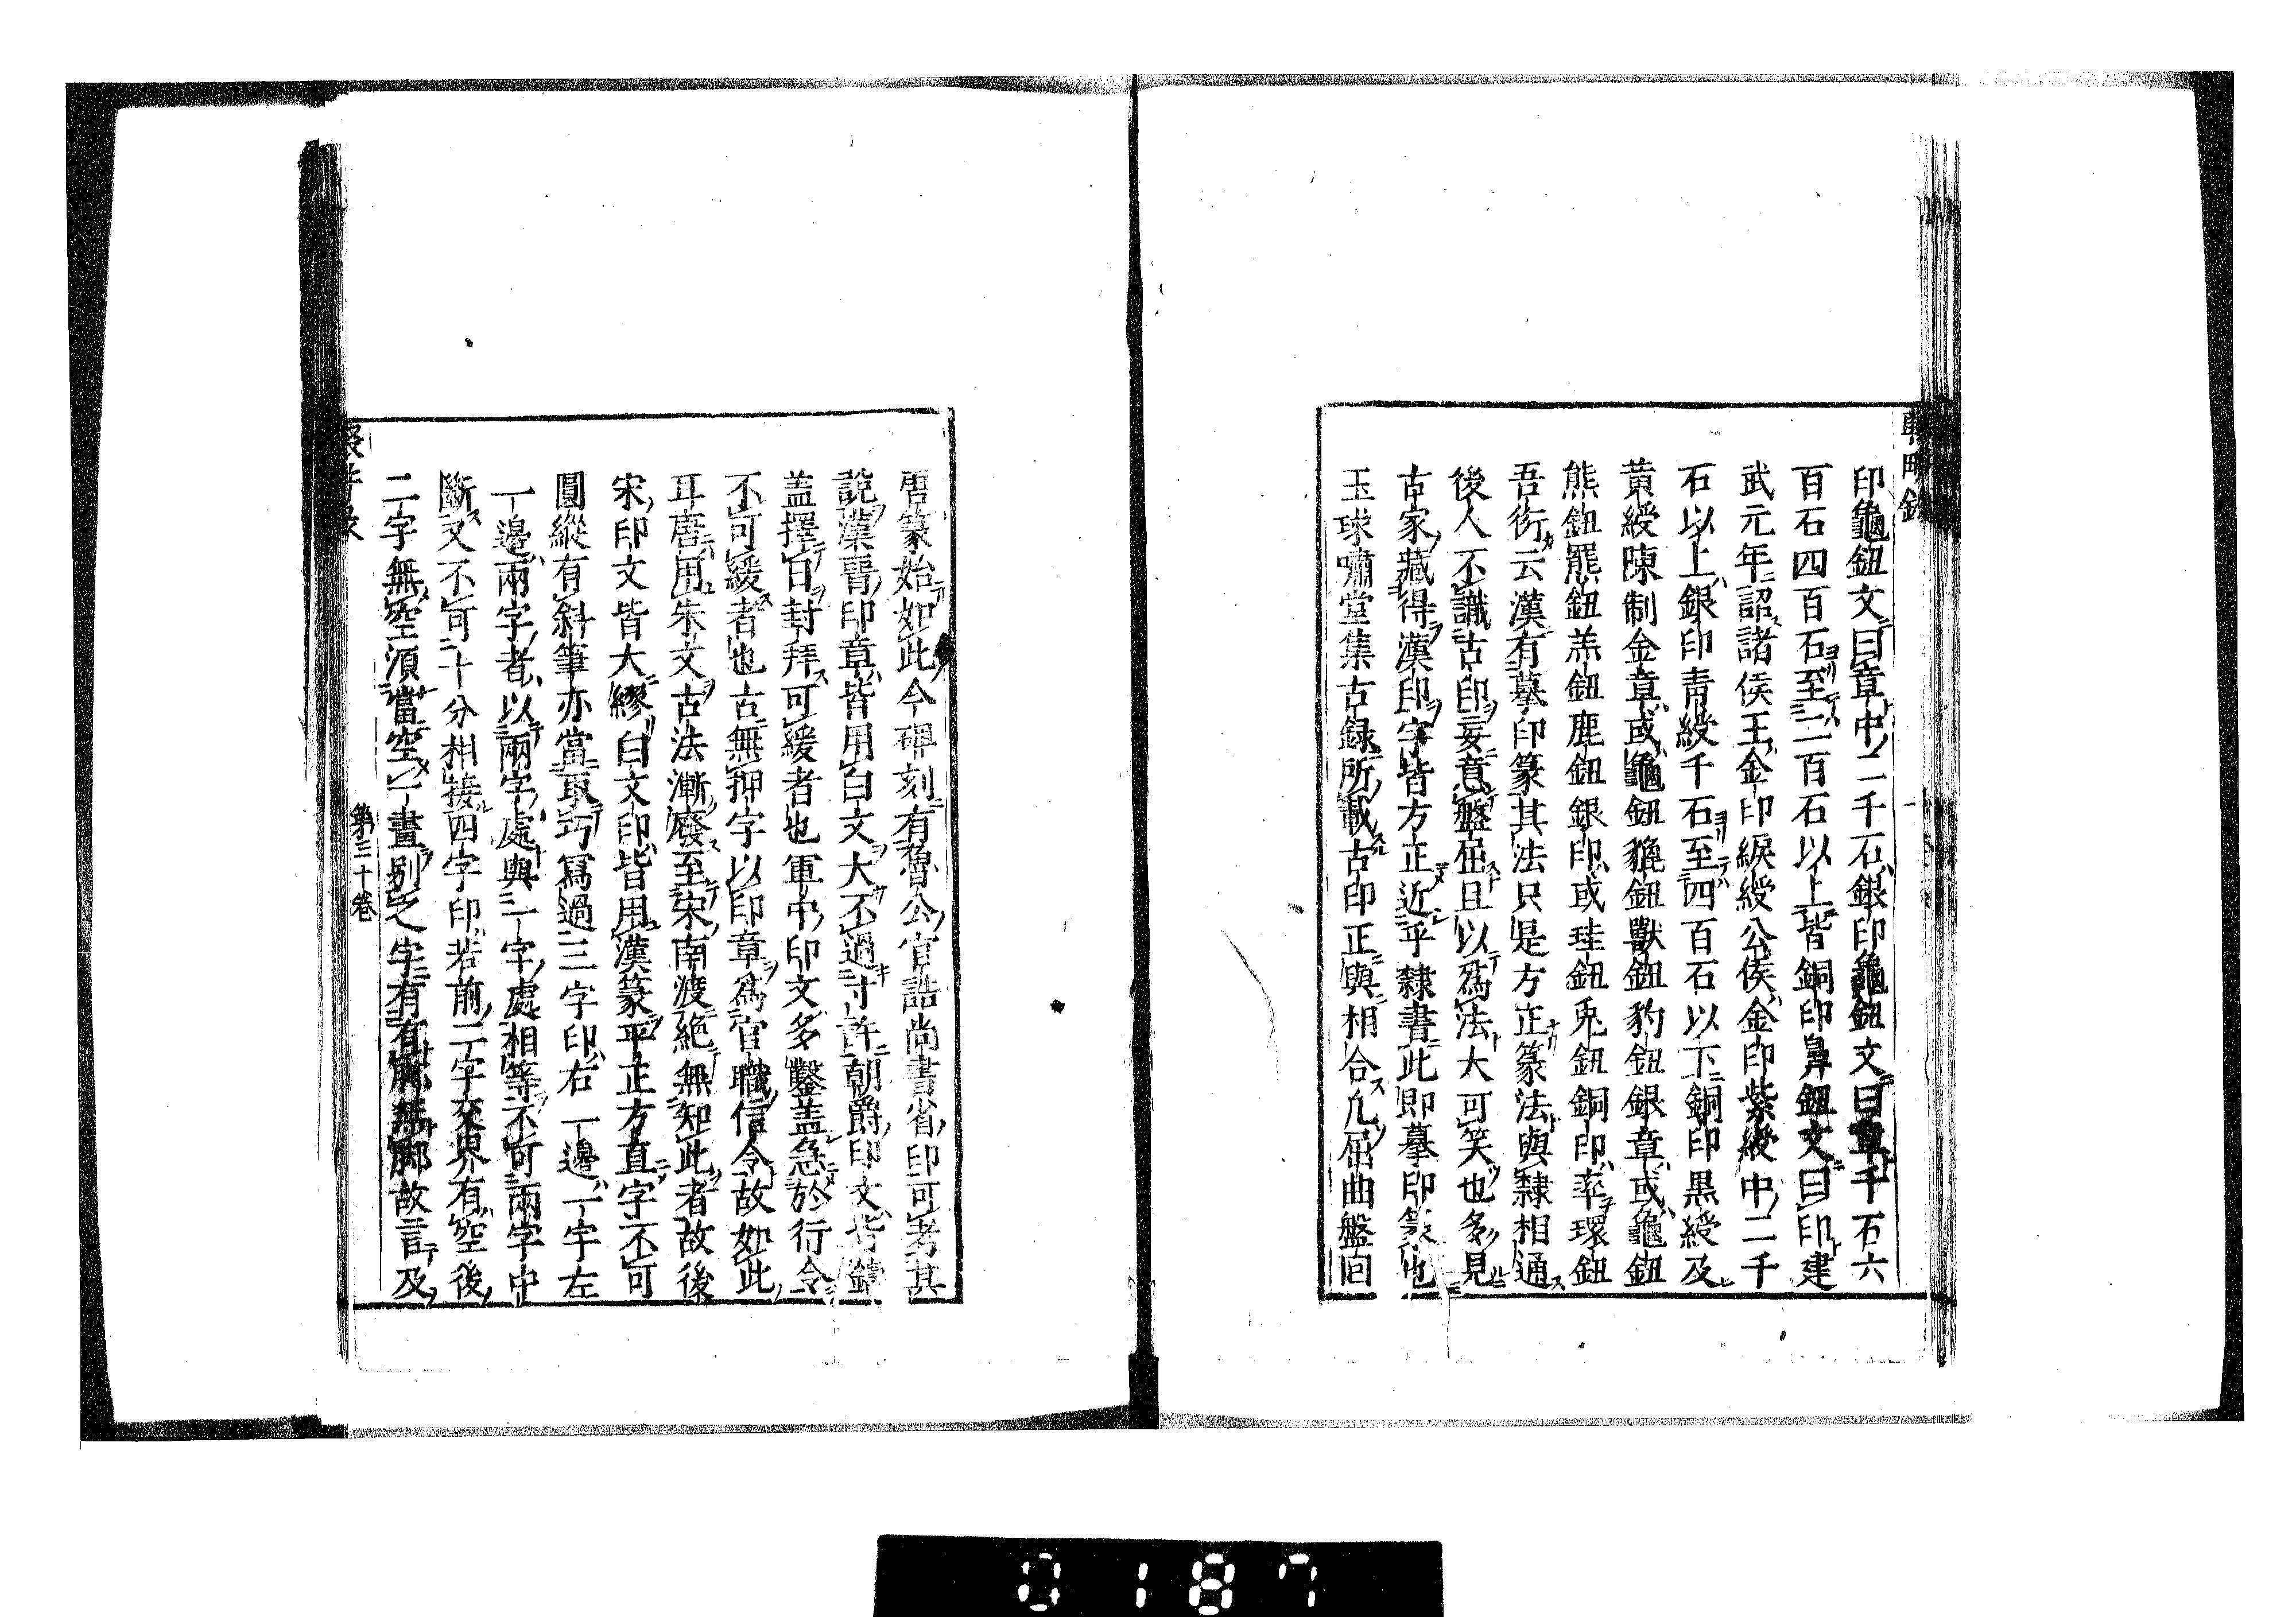 輟畊錄
印龜鈕文曰章中二千石銀印龜鈕文曰章千石六
百石四百石至二百石以上皆銅印鼻鈕文曰印建
武元年詔諸侯王金印綟綬公侯金印紫綬中二千
石以上銀印青綬千石至四百石以下銅印黑綬及
黃綬陳制金章或龜鈕貔鈕獸鈕豹鈕銀章或龜鈕
熊鈕羆鈕羔鈕鹿鈕銀印或珪鈕兎鈕銅印率環鈕
吾衍云漢有摹印篆其法只是方正篆法與隸相通
後人不識古印妄意盤屈且以爲法大可笑也多見
古家藏得漢印字皆方正近乎隸書此即摹印篆也
王球嘯堂集古録所載古印正與相合凢屈曲盤回
唐篆始如此今碑刻有魯公官誥尚書省印可考其
說漢晉印章皆用白文大不過寸許朝爵印文皆鑄
盖擇日封拜可緩者也軍中印文多鑿盖急於行令
不可緩者也古無押字以印章爲官職信令故如此
耳唐用朱文古法漸廢至宋南渡絶無知此者故後
宋印文皆大繆白文印皆用漢篆平正方直字不可
圓縱有斜筆亦當取巧寫過三字印右一邊一字左
一邊兩字者以兩字處與一字處相等不可兩字中
斷又不可十分相接四字印若前二字交界有空後
二字無空須當空一畫别之字有有脚無脚故言及
第三十卷